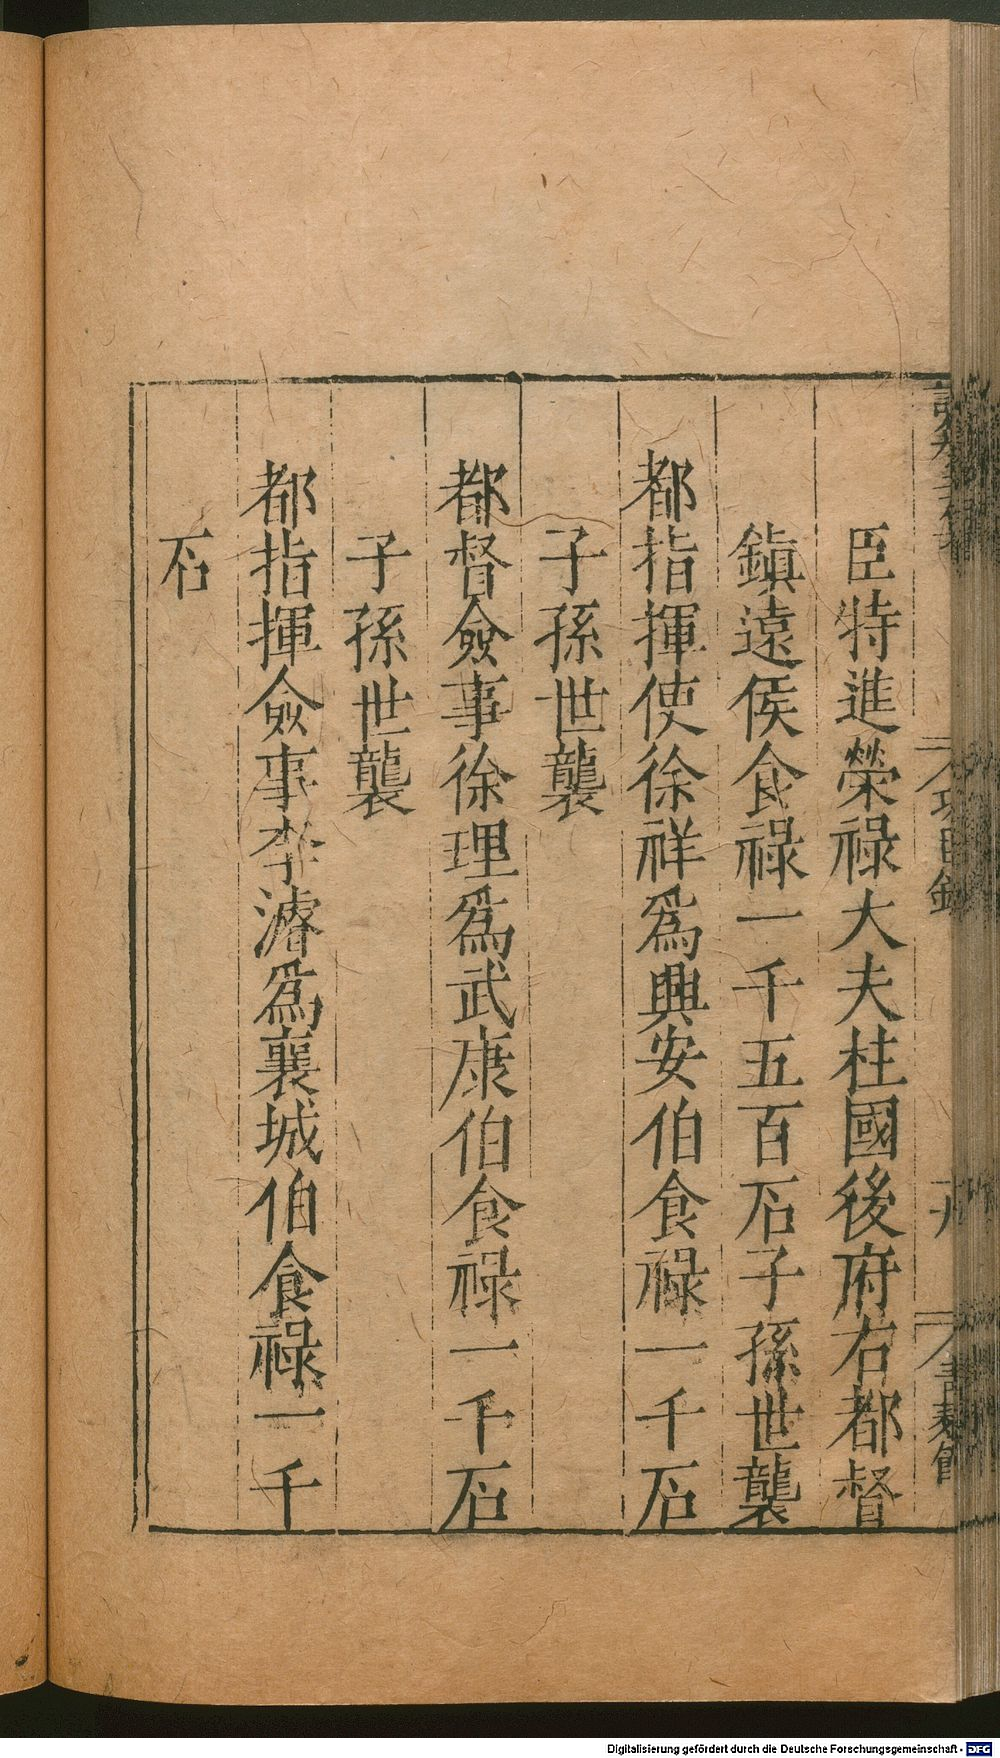 臣特進榮祿大夫柱國後府右都督
鎮遠侯食祿一千五百石子孫世襲
都指揮使徐祥爲興安伯食祿一千石
子孫世襲
都督僉事徐理爲武康伯食祿一千石
子孫世襲
都指揮僉事李濬爲襄城伯食祿一千
石
Digitalisierung gefördert durch die Deutsche Forschungsgemeinschaft - DFG